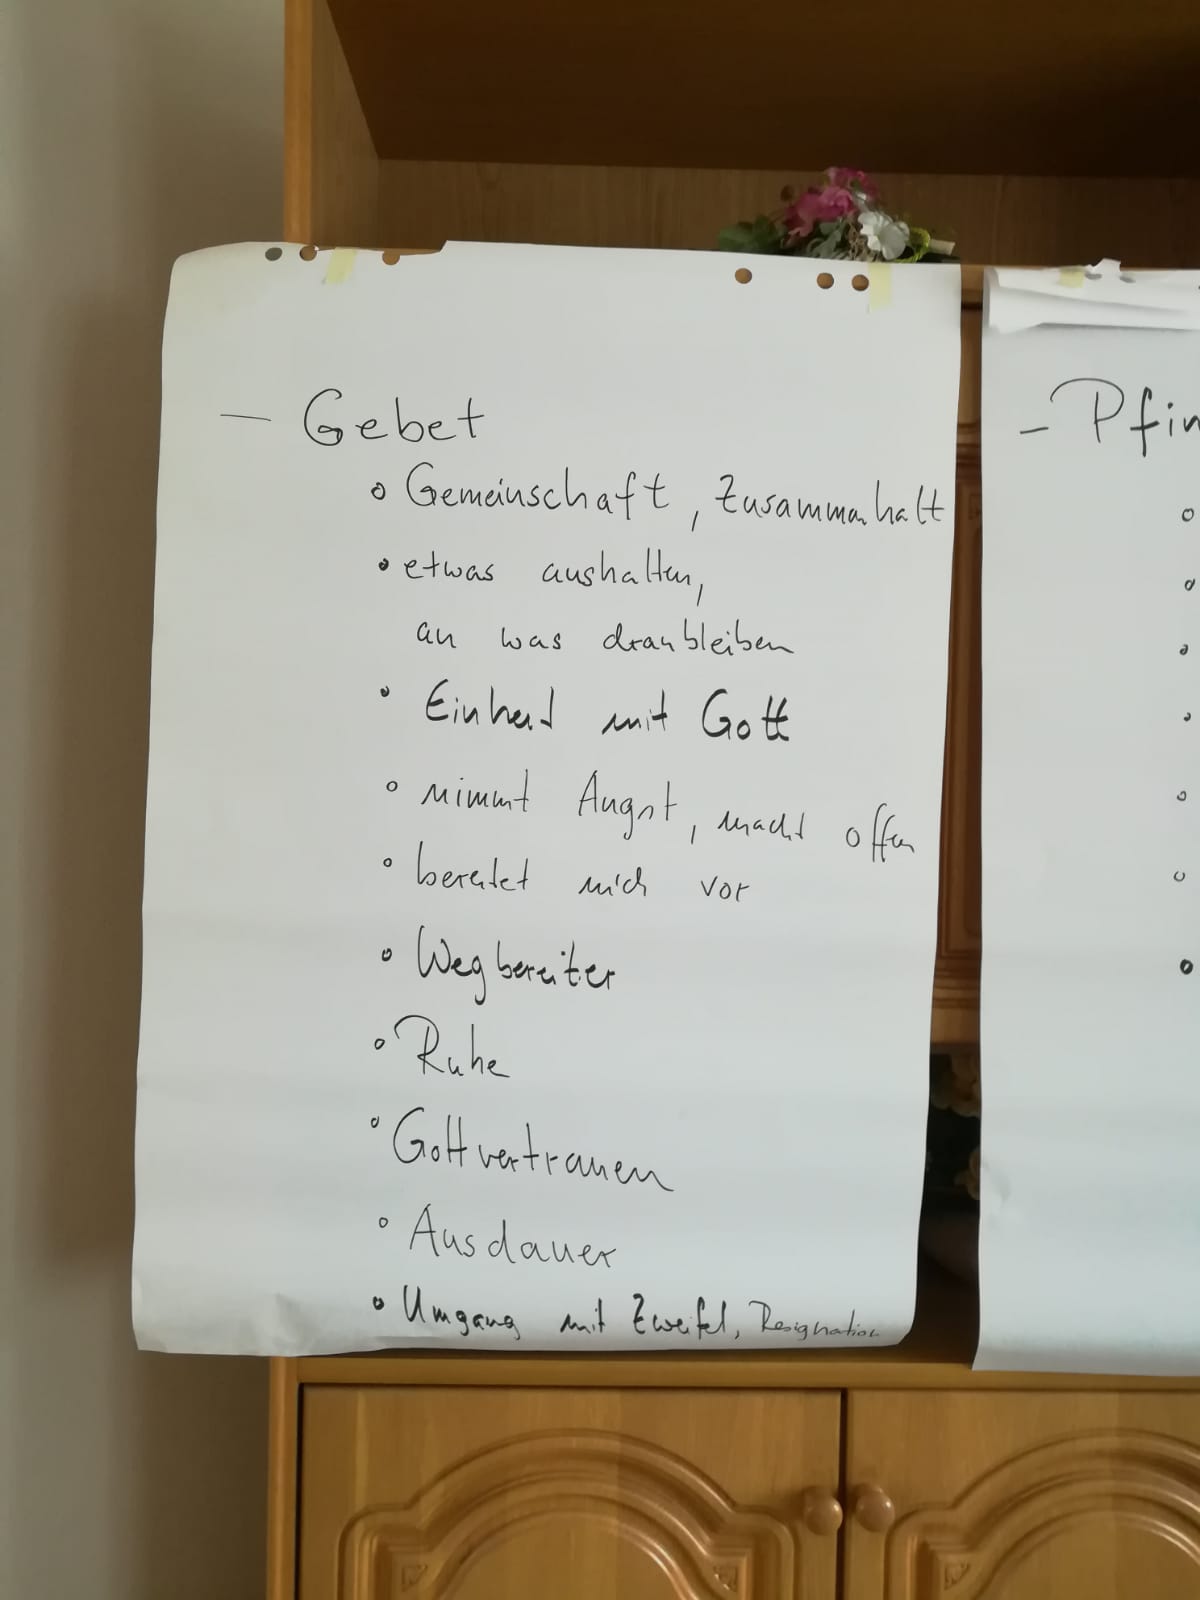 – Gebet
° Gemeinschaft, Zusammenhalt
° etwas aushalten,
an was dranbleiben
° Einheit mit Gott
° nimmt Angst, macht offen
° bereitet mich vor
° Wegbereiter
° Ruhe
° Gottvertrauen
° Ausdauer
° Umgang mit Zweifel, Resignation
– Pfin